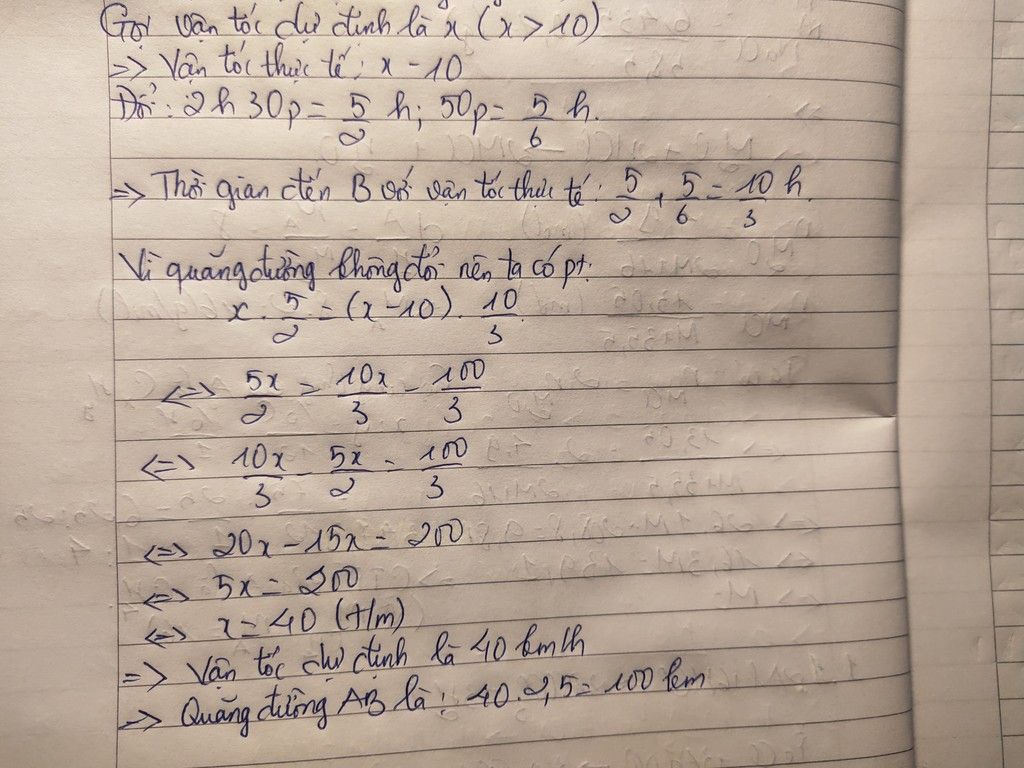 Gọi vận tốc dự định là x (x > 10)
=> Vận tốc thực tế: x - 10
Đổi: 2h 30p = 5/2 h; 50p = 5/6 h.
=> Thời gian đến B với vận tốc thực tế: 5/2 + 5/6 = 10/3 h.
Vì quãng đường không đổi nên ta có pt:
x . 5/2 = (x - 10) . 10/3
<=> 5x/2 = 10x/3 - 100/3
<=> 10x/3 - 5x/2 = 100/3
<=> 20x - 15x = 200
<=> 5x = 200
<=> x = 40 (t/m)
=> Vận tốc dự định là 40 km/h
=> Quãng đường AB là: 40 . 2,5 = 100 km